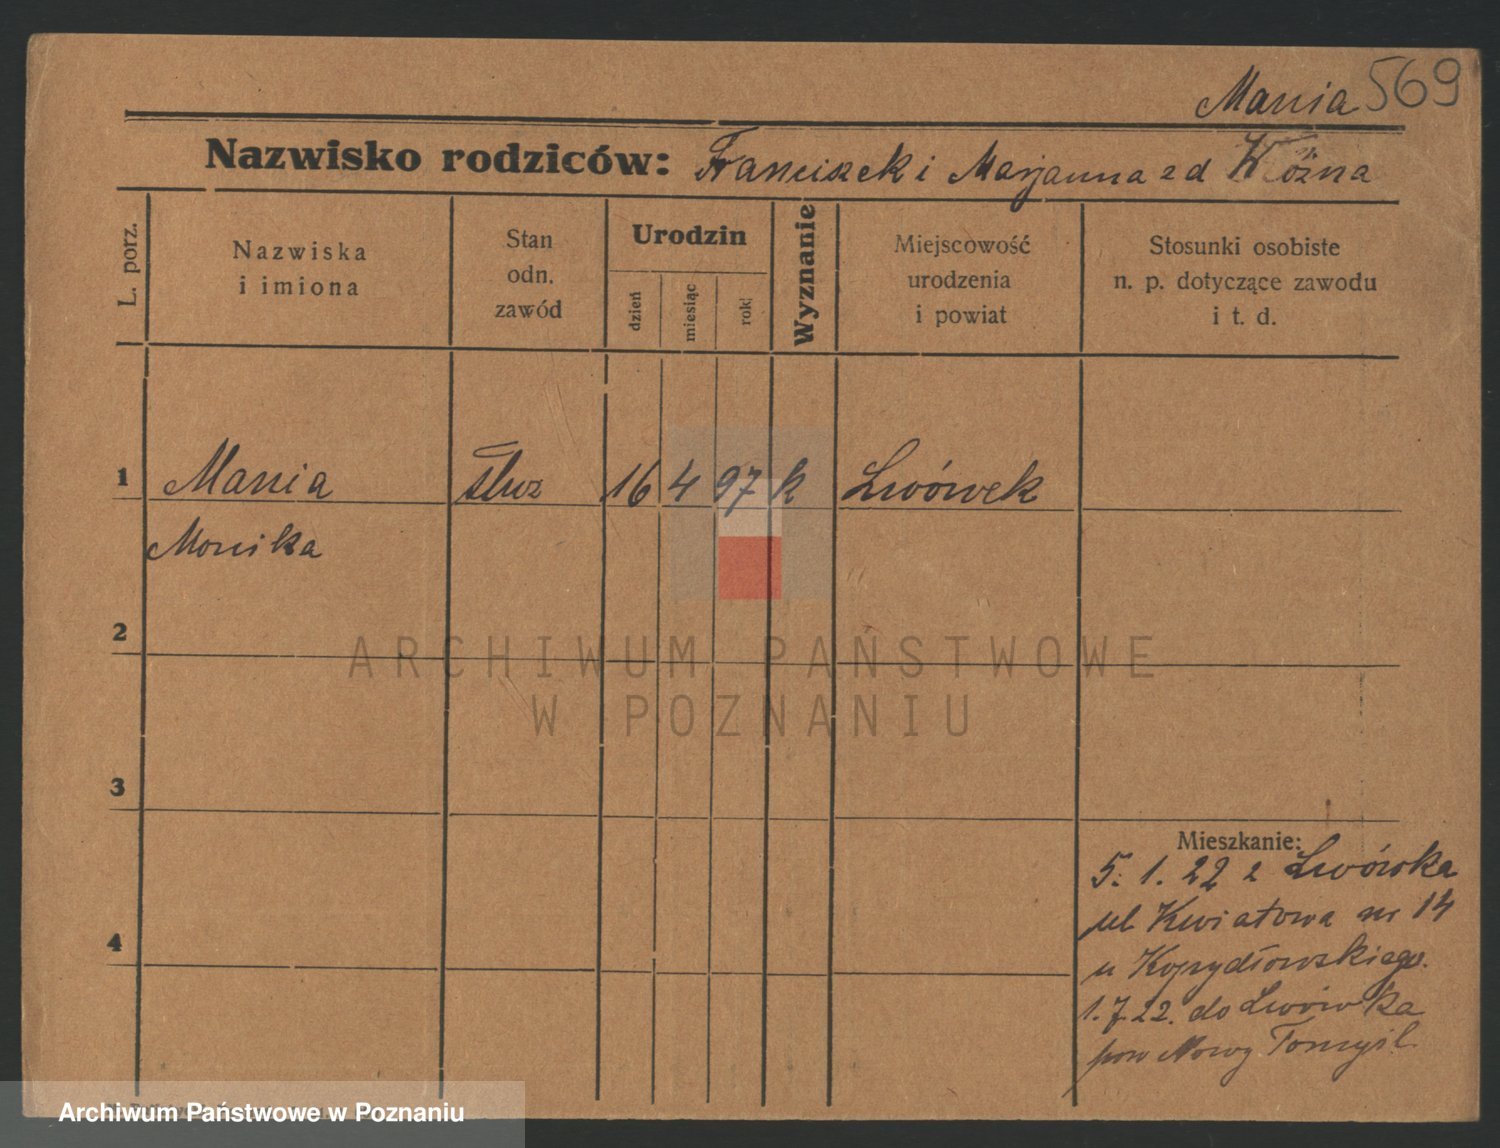 Mania 569
Nazwisko rodziców: Franciszek i Marjanna zd Woźna
L. porz.
Nazwiska
i imiona
Stan
odn.
zawód
Urodzin
dzień
miesiąc
rok
Wyznanie
Miejscowość
urodzenia
i powiat
Stosunki osobiste
n. p. dotyczące zawodu
i t. d.
1 Mania służ 16 4 97 k Lwówek
Monika
2
ARCHIWUM PAŃSTWOWE
W POZNANIU
3
Mieszkanie:
5. 1. 22 z Lwówka
ul Kwiatowa nr 14
4
u Kopydłowskiego.
1. 7 22. do Lwówka
pow Nowy Tomyśl
Archiwum Państwowe w Poznaniu